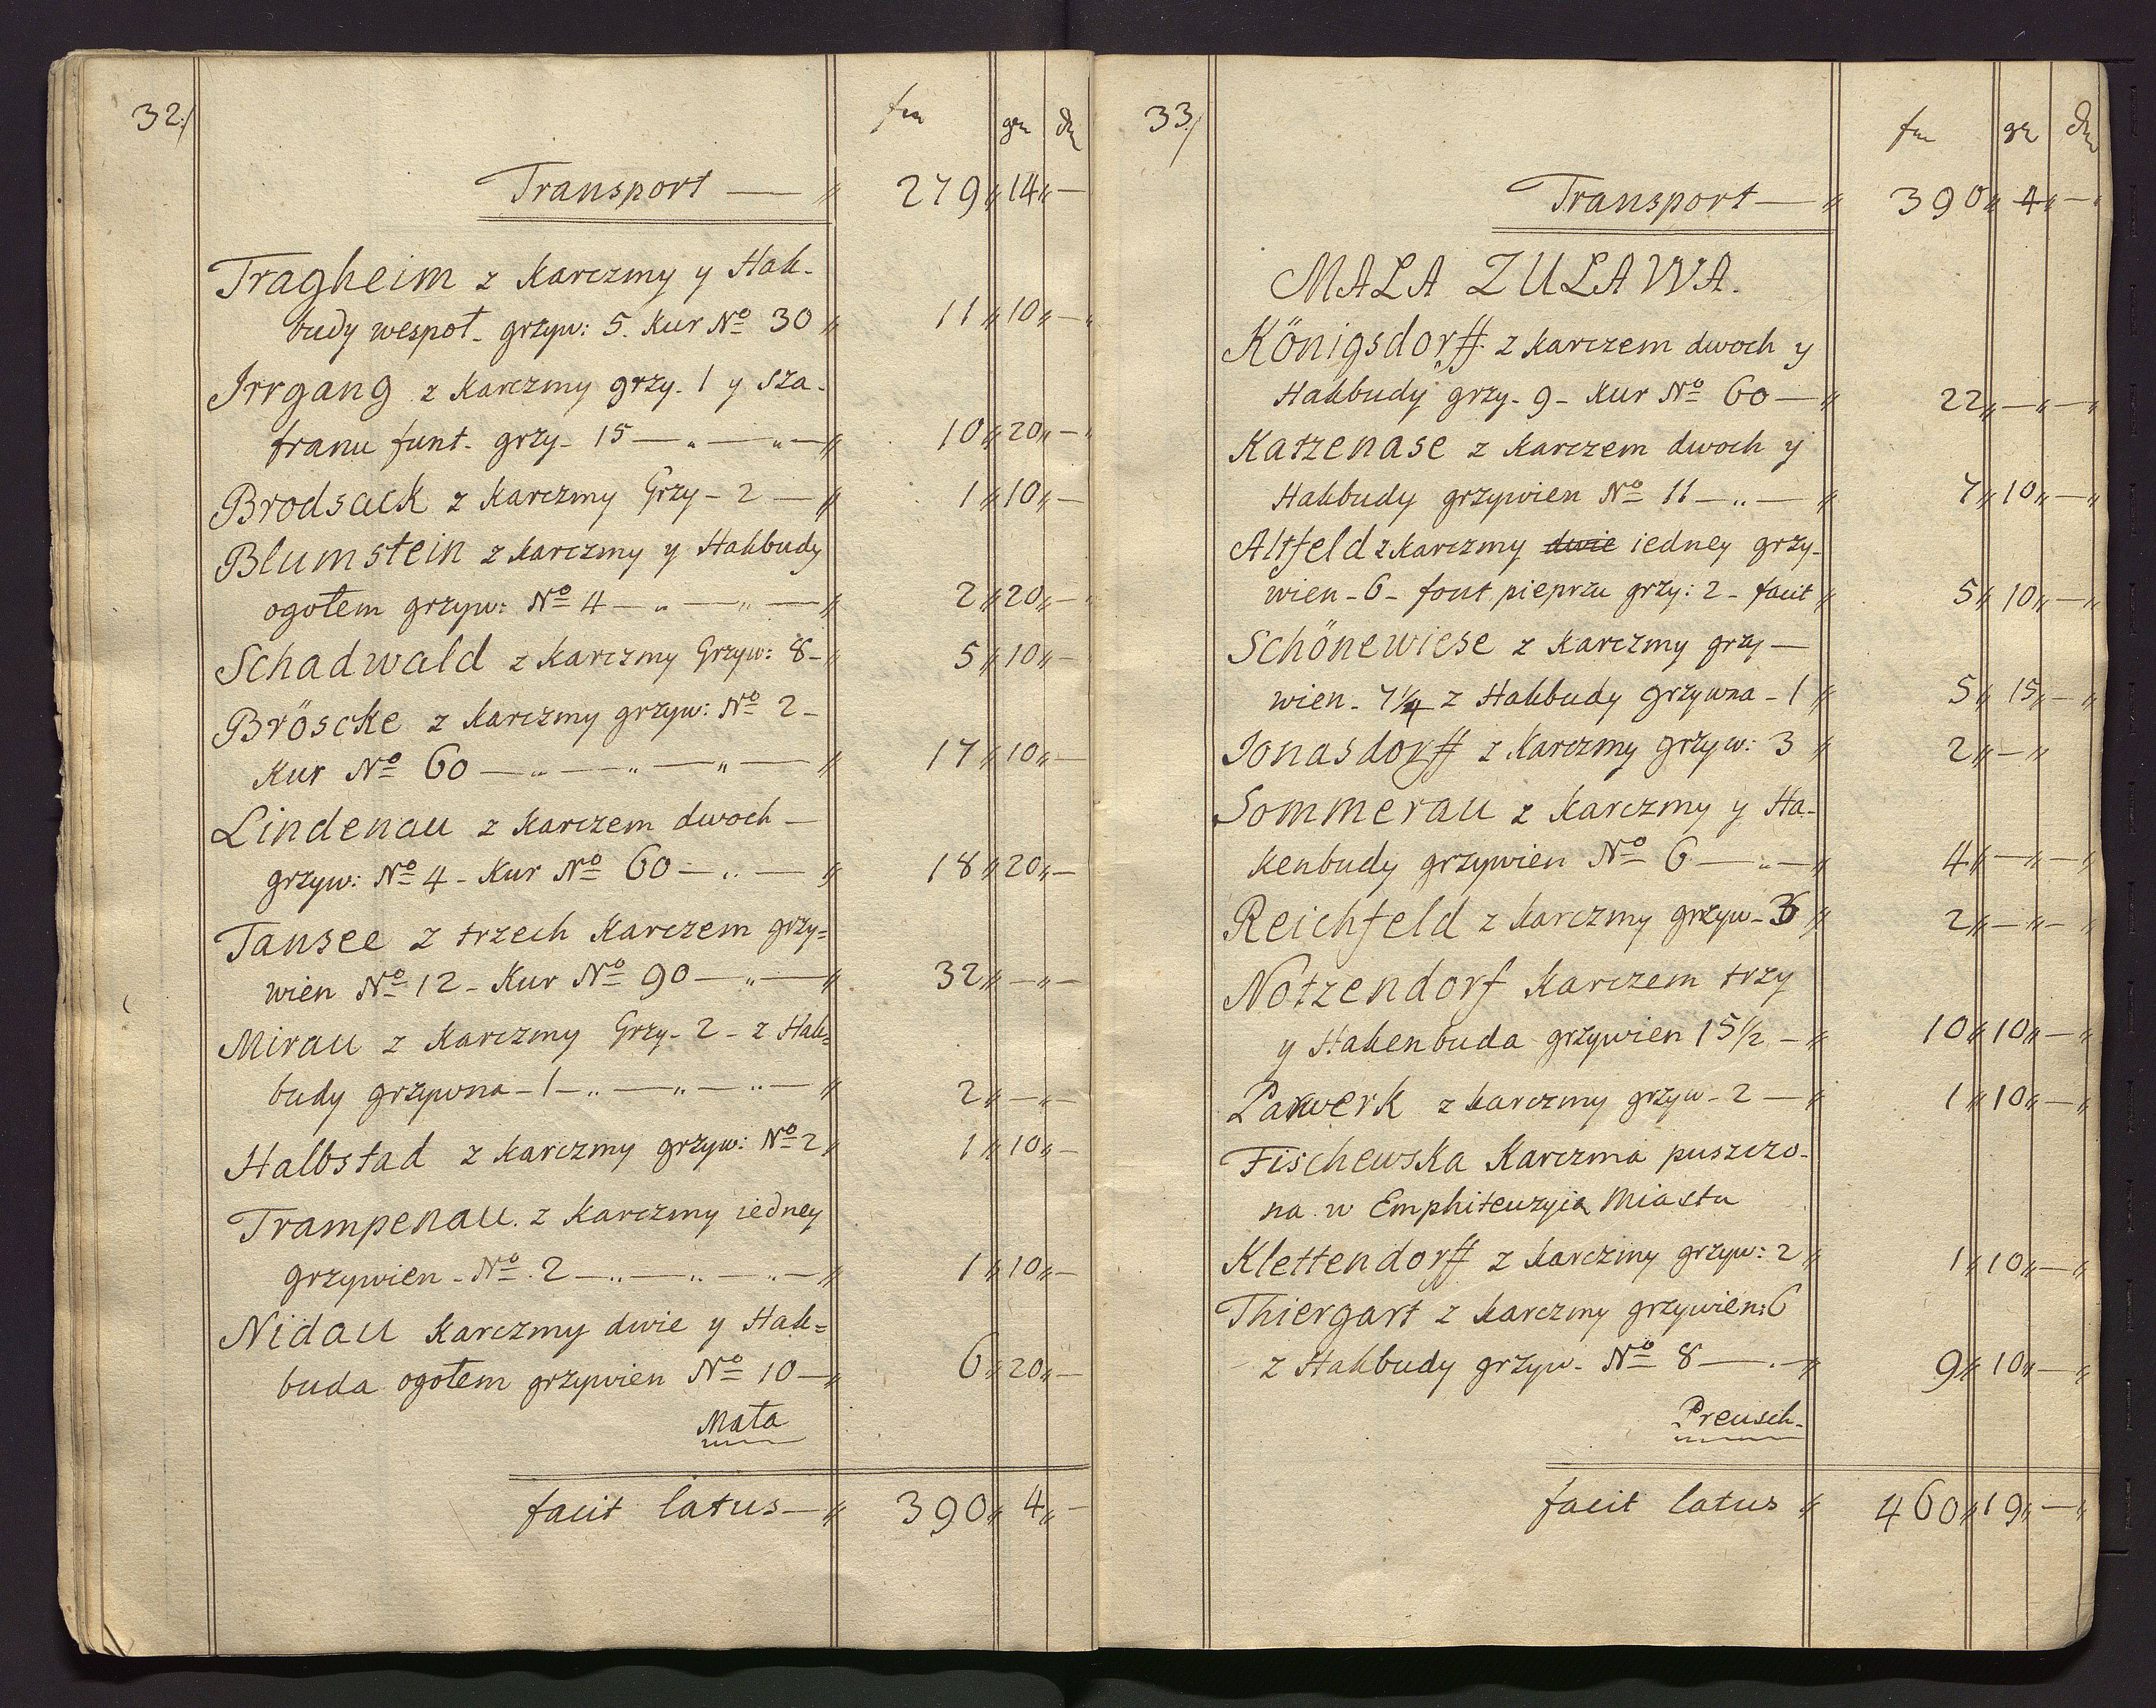 32./
fn gr dn
Transport — 279 14 —
Tragheim z Karczmy y Hak-
budy wespoł. grzyw: 5. Kur No 30 11 10 —
Irrgang z Karczmy grzy. 1 y sza-
franu funt. grzy. 15 — 10 20 —
Brodsack z Karczmy Grzy- 2 — 1 10 —
Blumstein z Karczmy y Hakbudy
ogołem grzyw: No 4 — 2 20 —
Schadwald z Karczmy Grzyw: 8 - 5 10 —
Bröscke z Karczmy grzyw: No 2 -
Kur No 60 — 17 10 —
Lindenau z Karczem dwoch —
grzyw: No 4 - Kur No 60 — 18 20 —
Tansee z trzech Karczem grzy=
wien No 12 - Kur No 90 — 32 — —
Mirau z Karczmy Grzy- 2 - z Hak=
budy grzywna - 1 — 2 — —
Halbstad z Karczmy grzyw: No 2 1 10 —
Trampenau. z Karczmy iedney
grzywien - No 2 — 1 10 —
Nidau Karczmy dwie y Hak=
buda ogołem grzywien No 10 — 6 20 —
Mała
facit latus — 390 4 —
33./
fn gr dn
Transport — 390 4 —
MALA ZULAWA.
Königsdorff z Karczem dwoch y
Hakbudy grzy- 9 - Kur No 60 — 22 — —
Katzenase z Karczem dwoch y
Hakbudy grzywien No 11 — 7 10 —
Altfeld z Karczmy dwie iedney grzy-
wien - 6 - font pieprzu grzy: 2 - facit 5 10 —
Schönewiese z Karczmy grzy —
wien - 7 1/4 z Hakbudy grzywna - 1 5 15 —
Jonasdorff z Karczmy grzyw: 3 2 —
Sommerau z Karczmy y Ha-
kenbudy grzywien No 6 — 4 — —
Reichfeld z Karczmy grzyw - 3 2 — —
Notzendorf Karczem trzy
y Hakenbuda grzywien 15 1/2 — 10 10 —
Parwerk z Karczmy grzyw - 2 — 1 10 —
Fischewska Karczma puszczo-
na w Emphiteuzyia Miastu
Klettendorff z Karczmy grzyw: 2 1 10 —
Thiergart z Karczmy grzywien: 6
z Hakbudy grzyw - No 8 — 9 10 —
Preusch-
facit latus 460 19 —